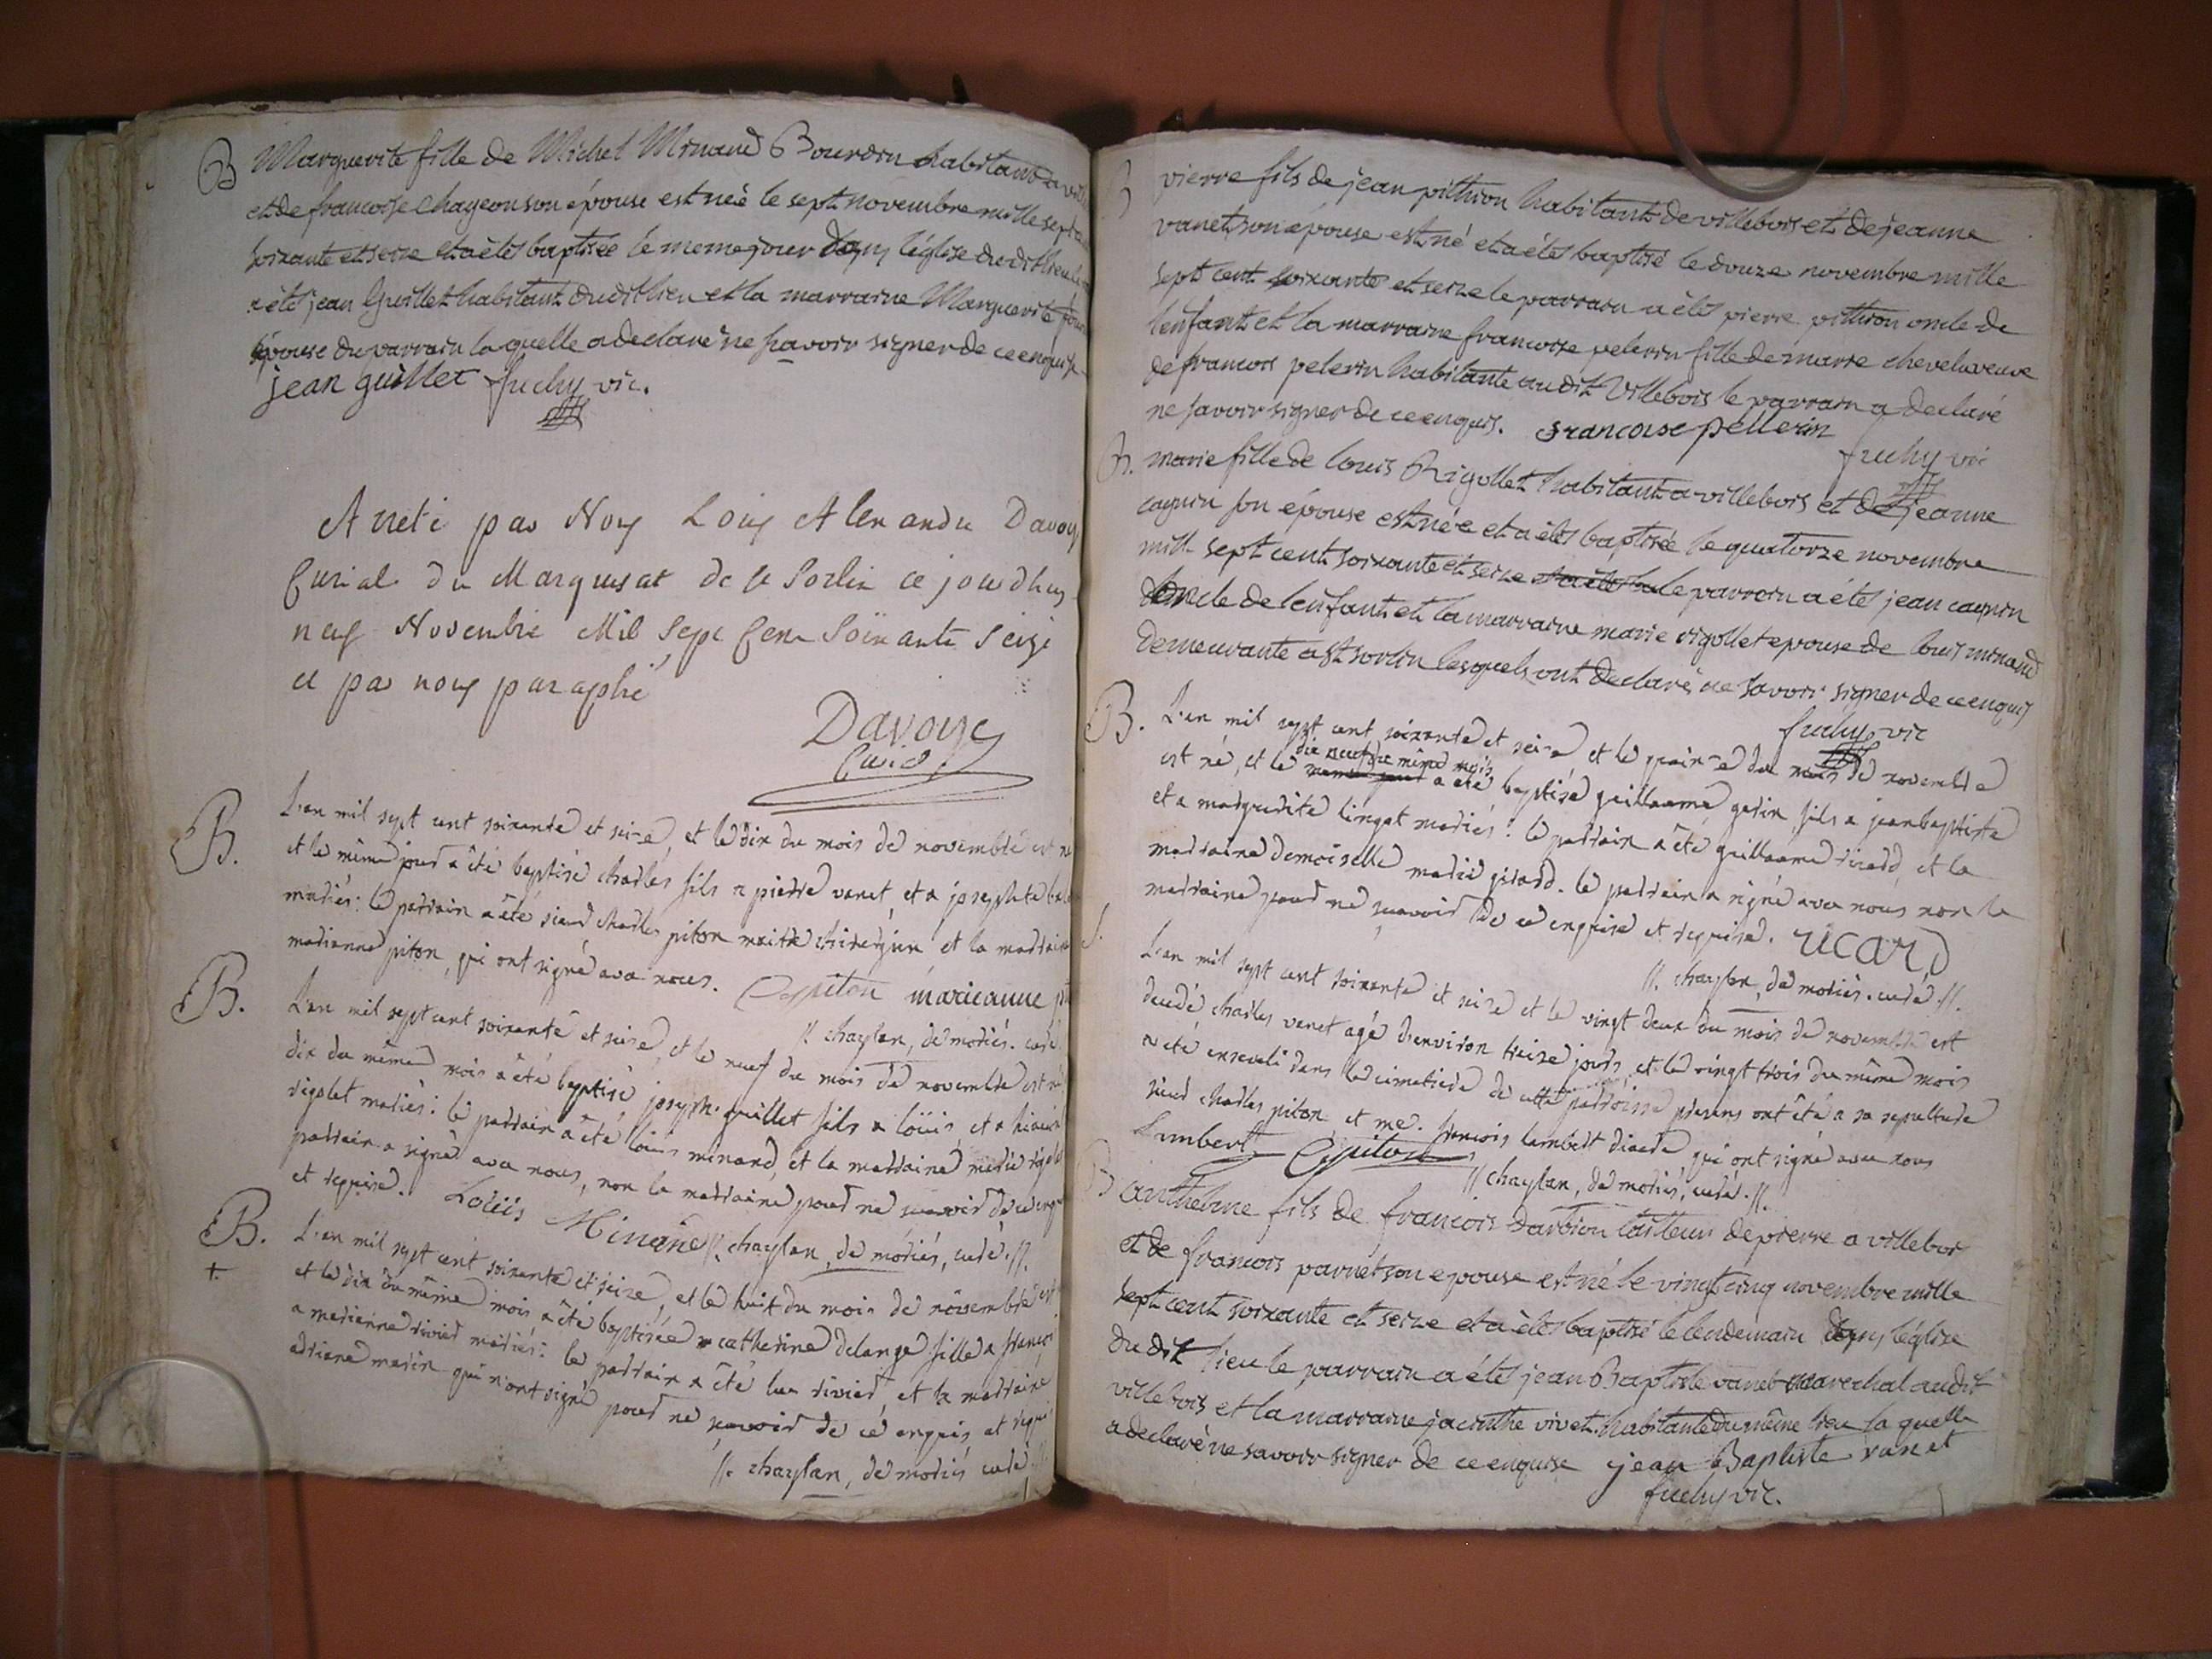 B Marguerite fille de Michel Minand Bourdin habitant a
et de francoise Chageon son épouse est née le sept novembre mille sept
soixante et seize et a étés baptisée le meme jour dans l'église du dit lieu le
a étés jean Guillet habitant du dit lieu et la marraine Marguerite
épouse du parrain la quelle a declaré ne savoir signer de ce enquise
jean guillet fuchy vic.
Arreté par Nous Louis Alexandre Davoye
Curial du Marquisat de St Sorlin ce jourdhuy
neuf Novembre Mil Sept Cent Soixante Seize
et par nous paraphé
Davoye
Curial
B. L'an mil sept cent soixante et seize, et le dix du mois de novembre est né
et le même jour a été baptisé charles fils a pierre vanet, et a josephte
mariés: le parrain a été sieur charles piton maitre chirurgien, et la marraine
marianne piton, qui ont signé avec nous. C piton marieanne
// chaylan, de moriés. curé.
B. L'an mil sept cent soixante et seize, et le neuf du mois de novembre est né
dix du même mois a été baptisé joseph guillet fils a loüis, et a
rigolet mariés: le parrain a été loüis minand, et la marraine marie
parrain a signé avec nous, non la marraine pour ne scavoir de ce
et requise. Loüis Minand //. chaylan, de moriés, curé. //.
B. L'an mil sept cent soixante et seize, et le huit du mois de novembre est
+. et le dix du même mois a été baptisée catherine delange fille a francois
a marianne rivier mariés: le parrain a été luc rivier, et la marraine
adriane marin qui n'ont signé pour ne scavoir de ce enquis et requis
//. chaylan, de moriés curé //.
B pierre fils de jean pithion habitant de villebois et de jeanne
vanet son épouse est né et a étés baptisé le douze novembre mille
sept cent soixante et seize le parrain a étés pierre pithion oncle de
l'enfant et la marraine francoise pelerin fille de marie chevelu veuve
de francois pelerin habitante au dit Villebois le parrain a declaré
ne savoir signer de ce enquis. francoise pellerin
fuchy vic
B. marie fille de louis Rigollet habitant a villebois et de jeanne
cagnin son épouse est née et a étés baptisée le quatorze novembre
mill sept cent soixante et seize et a étés le parrain a étés jean cagnin
oncle de l'enfant et la marraine marie rigollet epouse de louis minand
demeurante a St sorlin lesquels ont declaré ne savoir signer de ce enquis
fuchy vic
B. L'an mil sept cent soixante et seize et le quinze du mois de novembre
dix neuf du même mois
est né, et le meme jour a été baptisé guillaume gerin, fils a jean baptiste
et a marguerite lingat mariés: le parrain a été guillaume ricard, et la
marraine demoiselle marie girard. le parrain a signé avec nous non la
marraine pour ne scavoir de ce enquise et requise. ricard
//. chaylan, de moriés. curé. //.
S. L'an mil sept cent soixante et seize et le vingt deux du mois de novembre est
decedé charles vanet agé d'environ treize jours, et le vingt trois du même mois
a été enseveli dans le cimetiere de cette parroisse presens ont été a sa sepulture
sieur charles piton, et me. francois lambert diacre qui ont signé avec nous
Lambert C piton
// chaylan, de moriés, curé. //.
B anthelme fils de francois Darbion tailleur de pierre a villebois
et de francois parnet son epouse est né le vingt cinq novembre mille
sept cent soixante et seize et a étés baptisé le lendemain dans l'église
du dit lieu le parrain a étés jean Baptiste vanet marechal au dit
villebois et la marraine jacinthe vivet habitante du même lieu la quelle
a declaré ne savoir signer de ce enquise jean Baptiste vanet
fuchy vic.